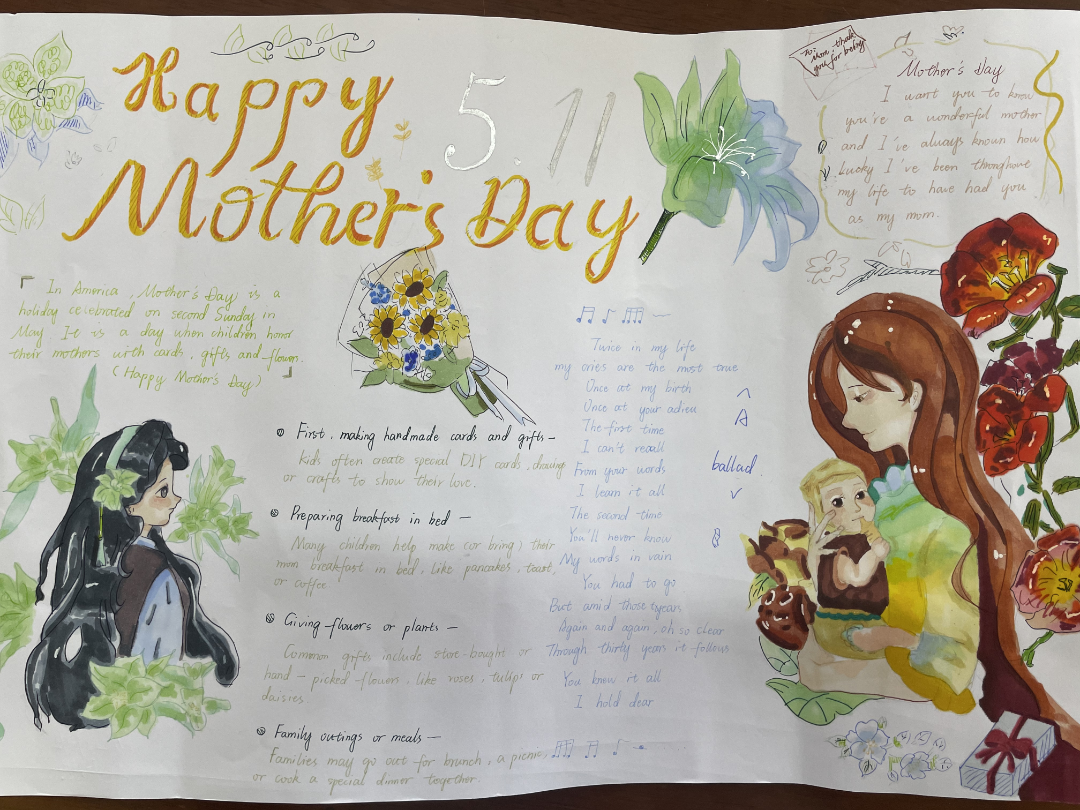 Happy
Mother's Day
5.11
To:
Mom, thank
you for being
Mother's Day
I want you to know
you're a wonderful mother
and I've always known how
Lucky I've been throughout
my life to have had you
as my mom.
In America, Mother's Day is a
holiday celebrated on second Sunday in
May It is a day when children honor
their mothers with cards, gifts and flower.
(Happy Mother's Day)
① First, making handmade cards and gifts—
kids often create special DIY cards, drawings
or crafts to show their love.
② Preparing breakfast in bed —
Many children help make (or bring) their
mom breakfast in bed, like pancakes, toast,
or coffee
③ Giving flowers or plants —
Common gifts include store-bought or
hand-picked flowers, like roses, tulips or
daisies.
④ Family outings or meals—
Families may go out for brunch, a picnic,
or cook a special dinner together.
Twice in my life
my cries are the most true
Once at my birth
Once at your adieu
The first time
I can't recall
From your words
I learn it all
The second time
You'll never know
My words in vain
You had to go
But amid those years
Again and again, oh so clear
Through thirty years it follows
You knew it all
I hold dear
ballad